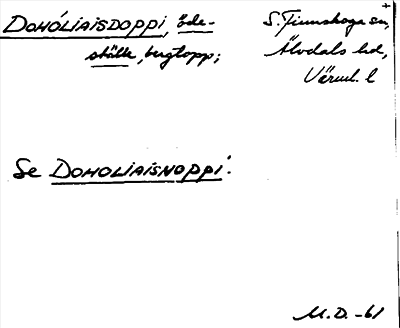 DOHÓLIAISDOPPI, öde-
ställe, bergtopp;
S. Finnskoga sn,
Älvdals hd,
Värml. l
Se DOHOLIAISNOPPI.
M.D. -61